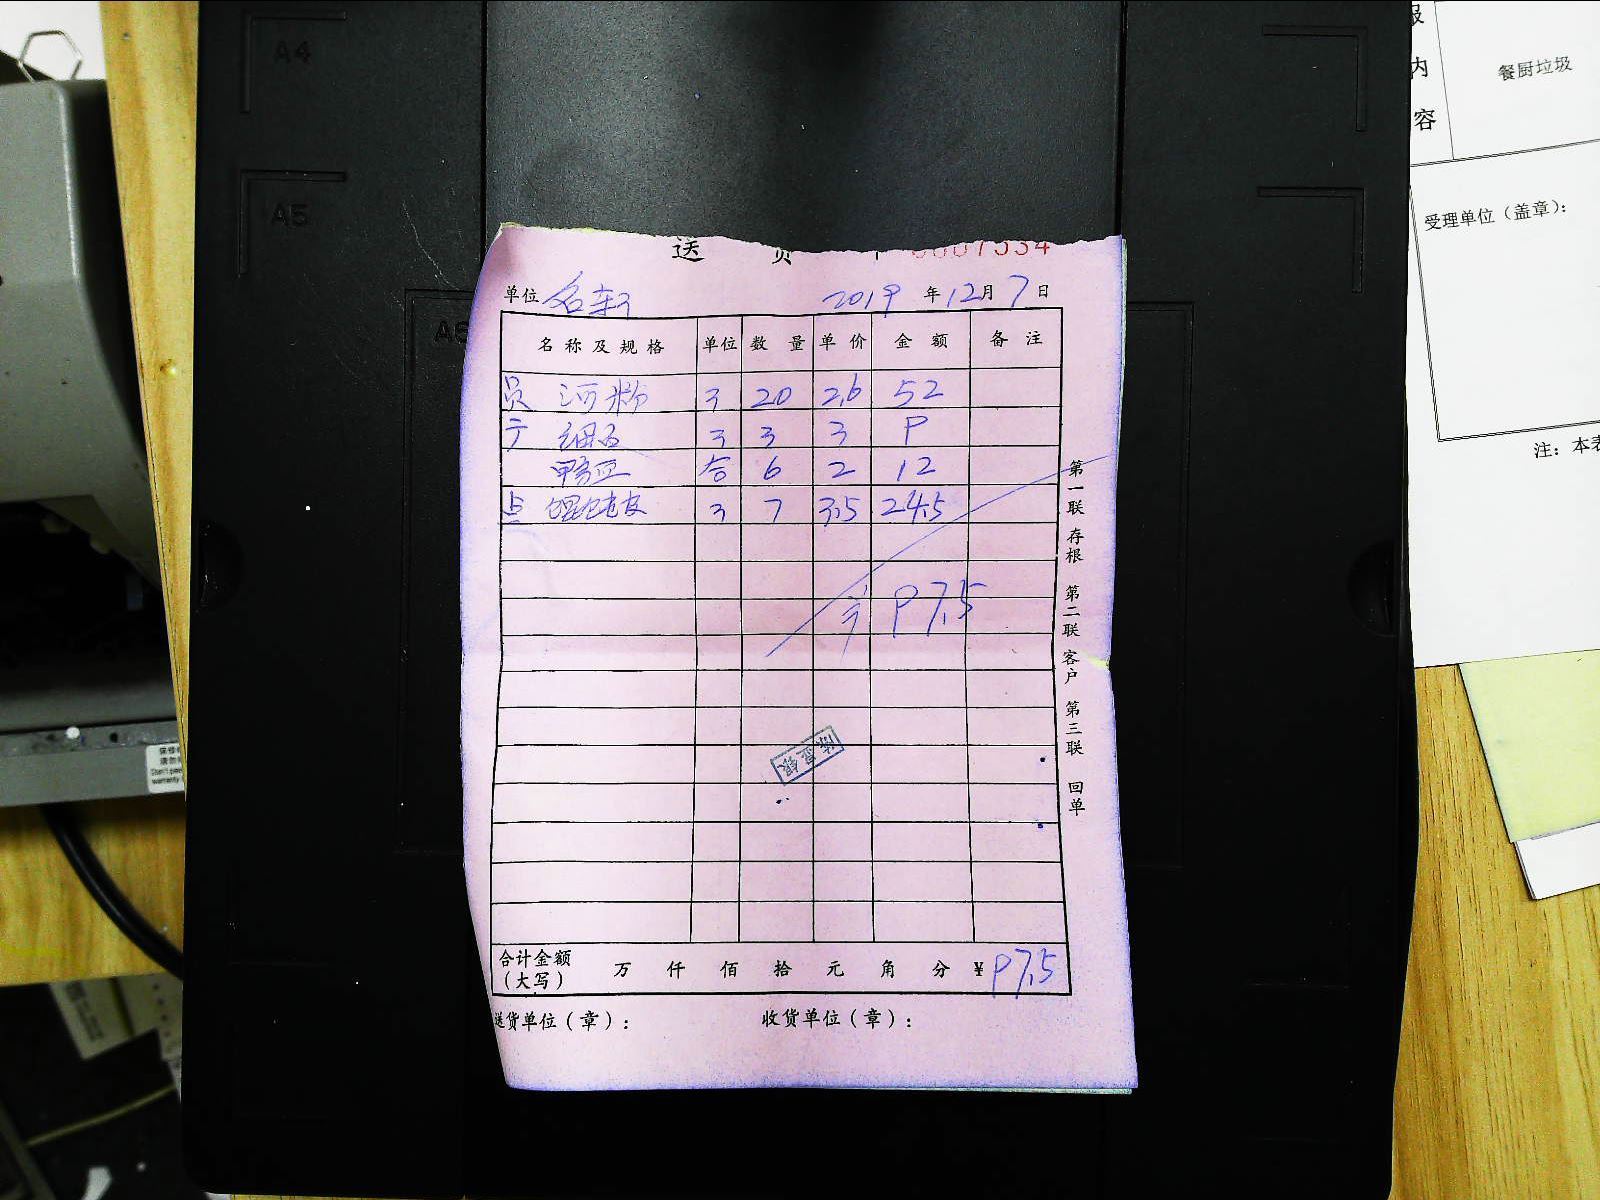 A4
A5
A5
报
内
容
餐厨垃圾
受理单位（盖章）：
注：本表
送 货 单
单位 名轩 2019 年 12 月 7 日
名称及规格 单位 数量 单价 金额 备注
员 河粉 3 20 2.6 52
于 3 3 3 9
鸭血 合 6 2 12
点 馄饨皮 3 7 3.5 24.5
97.5
合计金额（大写） 万 仟 佰 拾 元 角 分 ¥97.5
送货单位（章）： 收货单位（章）：
第一联 存根 第二联 客户 第三联 回单
保修
Don't
warranty